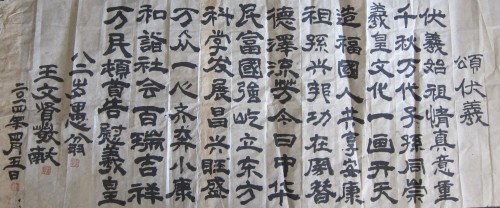 頌伏羲
伏羲始祖情真意重
千秋万代子孫同崇
羲皇文化一画开天
造福國人共享安康
祖孫兴邦功在替
德澤流芳今日中华
民富國強屹立东方
科学发展昌兴旺盛
万众一心齐奔小康
和諧社会百瑞吉祥
万民頓首告慰羲皇
八二岁愚翁
王文賢敬献
二〇一四年四月五日